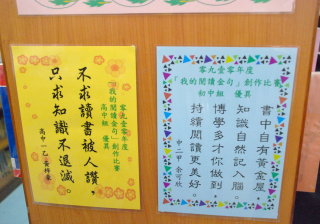 零九壹零年度
「我的閱讀金句」創作比賽
高中組　優異
不求讀書被人讚，
只求知識不退減。
高中一乙
零九壹零年度
「我的閱讀金句」創作比賽
初中組　優異
書中自有黃金屋
知識自然記入腦
博學多才你做到
持續閱讀更美好。
中二甲 余可欣